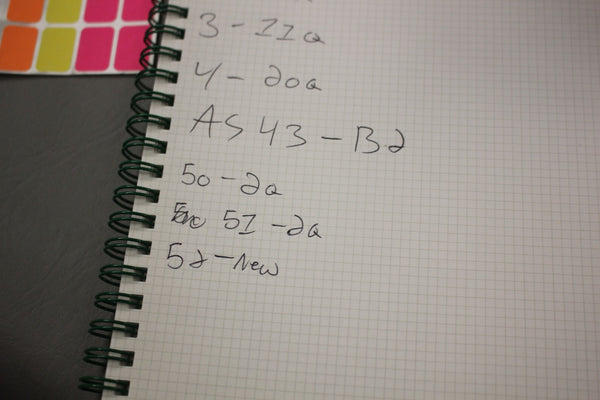 3 - 11a
4 - 20a
AS 43 - B2
50 - 2a
51 - 2a
52 - New